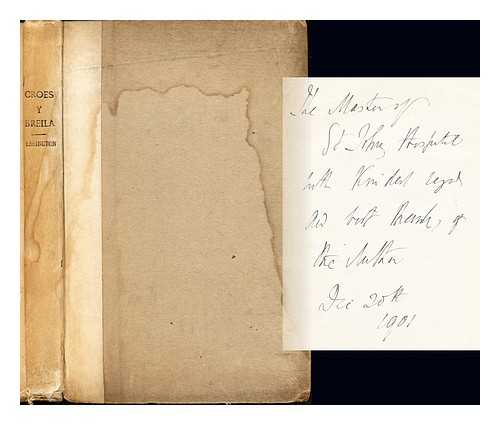 CROES
Y
BREILA
The Master of
St John's Hospital
with Kindest regards
and best thanks, of
the Author
Dec 20th
1901